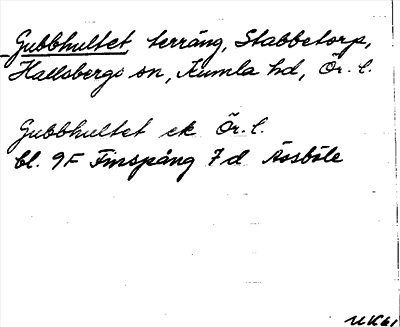 Gubbhultet, terräng, Stabbetorp,
Hallsbergs sn, Kumla hd, Ör. l.
Gubbhultet ek Ör. l.
bl. 9F Finspång 7d Åssböle
UK61